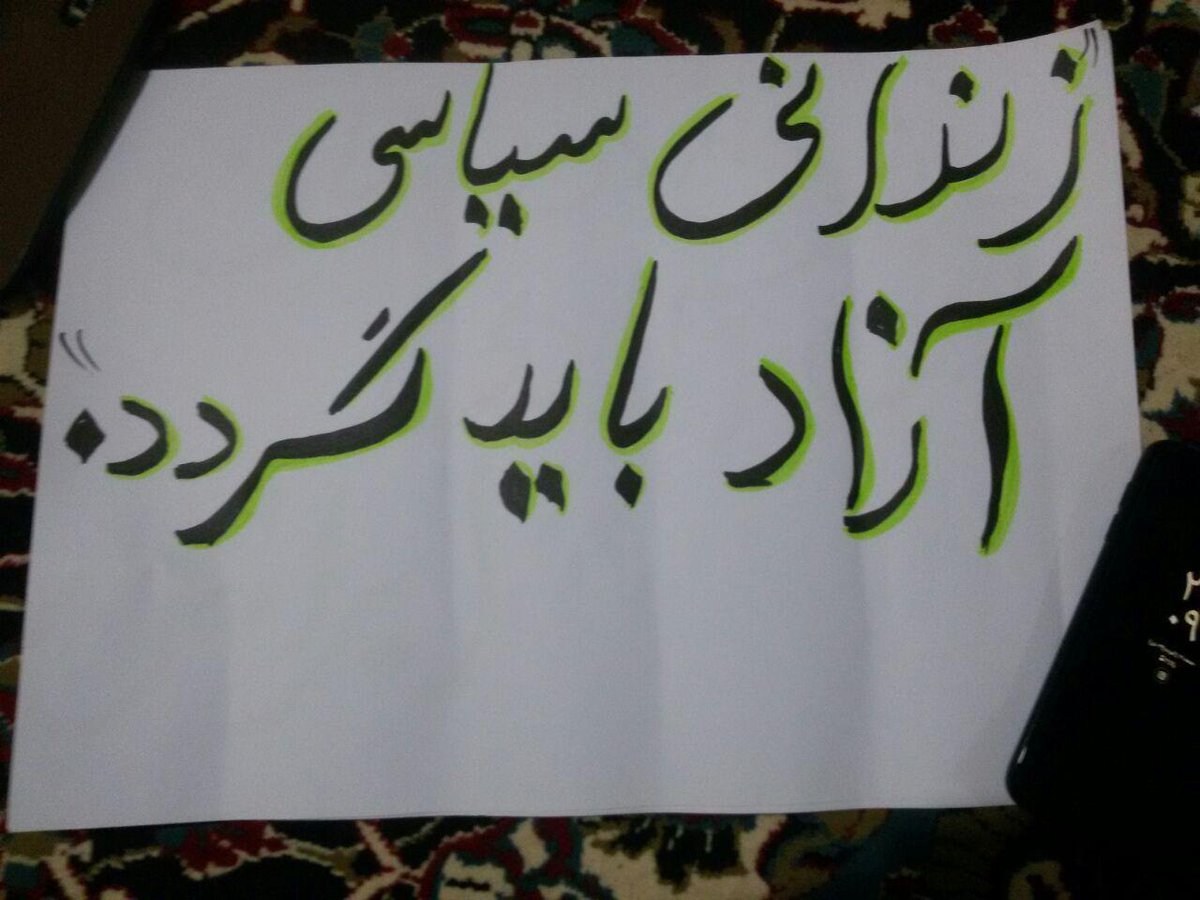 "زندانی سیاسی
آزاد باید گردد."